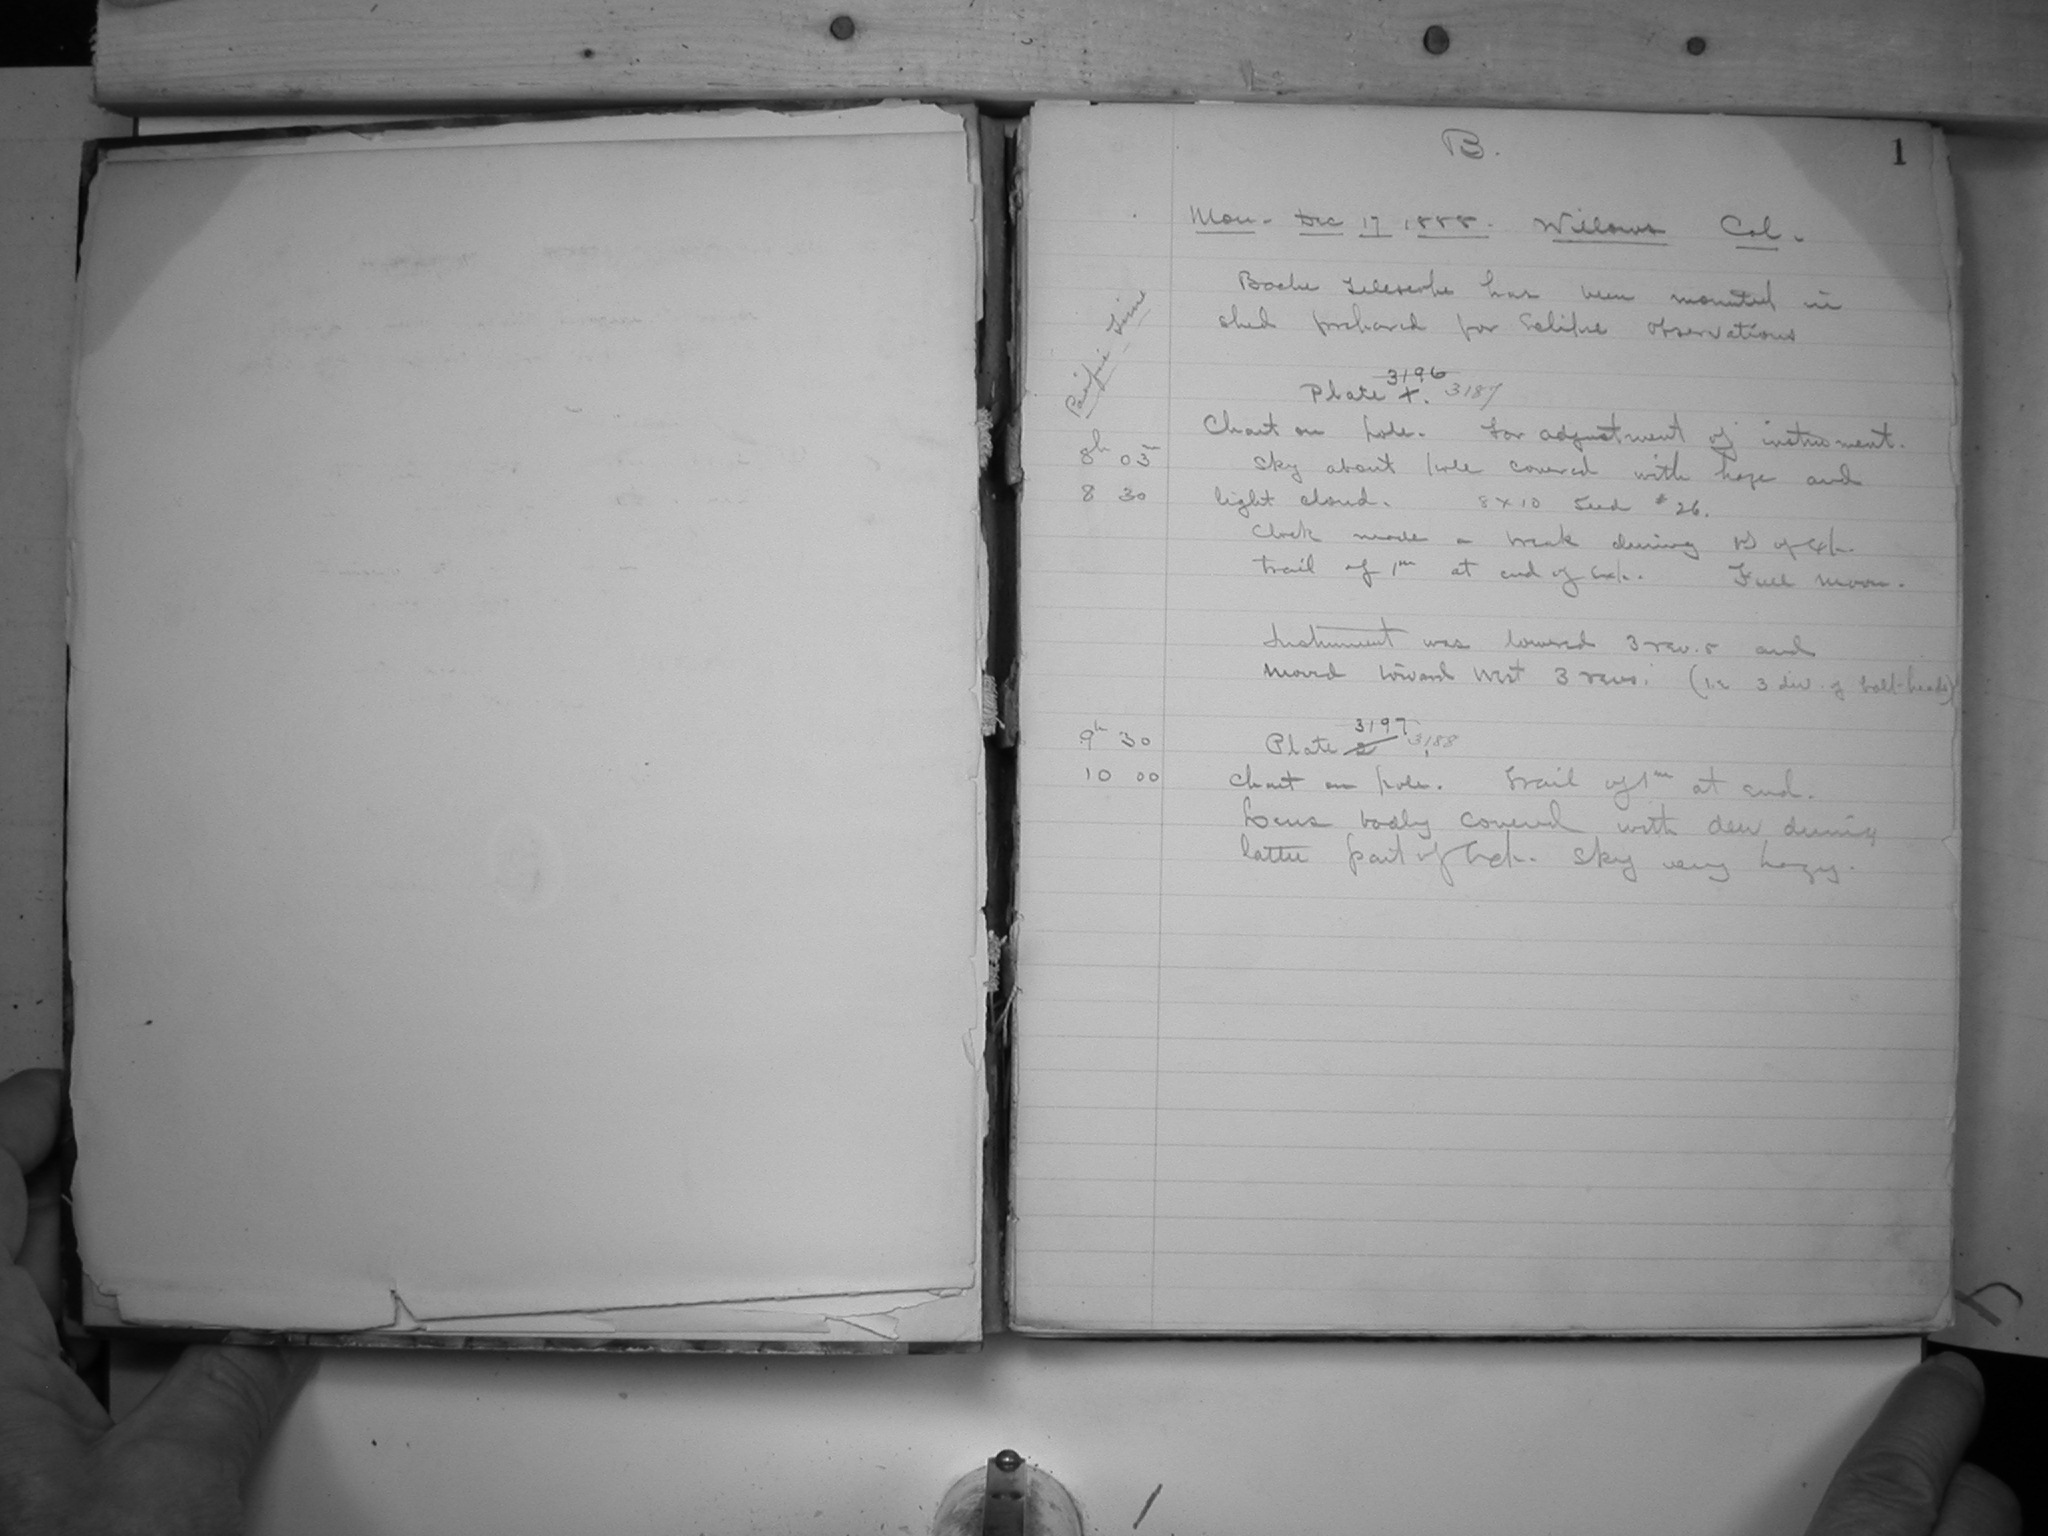 B.
1
Mon. Dec 17 1888. Willows Cal.
Pacific Time
Bache Telescope has been mounted in
shed prepared for Eclipse Observations
3196
Plate 1. 3187
Chart on pole. For adjustment of instrument.
8h 03m sky about pole covered with haze and
8 30 light cloud. 8 x 10 Seed #26.
Clock made a break during of Exp.
trail of 1m at end of Exp. Full moon.
Instrument was lowered 3 rev.s and
moved toward west 3 revs. (i.e 3 div. of bolt-heads)
3197
9h 30 Plate 2 3188
10 00 Chart on pole. Trail of 1m at end.
Lens badly covered with dew during
latter part of Exp. Sky very hazy.